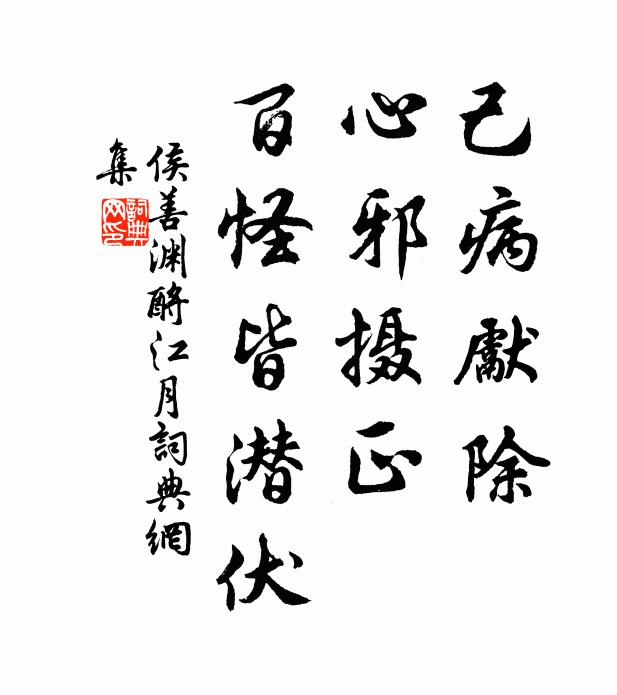 己病獻除
心邪摄正
百怪皆潜伏
侯善渊酹江月詞典網
集
詞典
网印